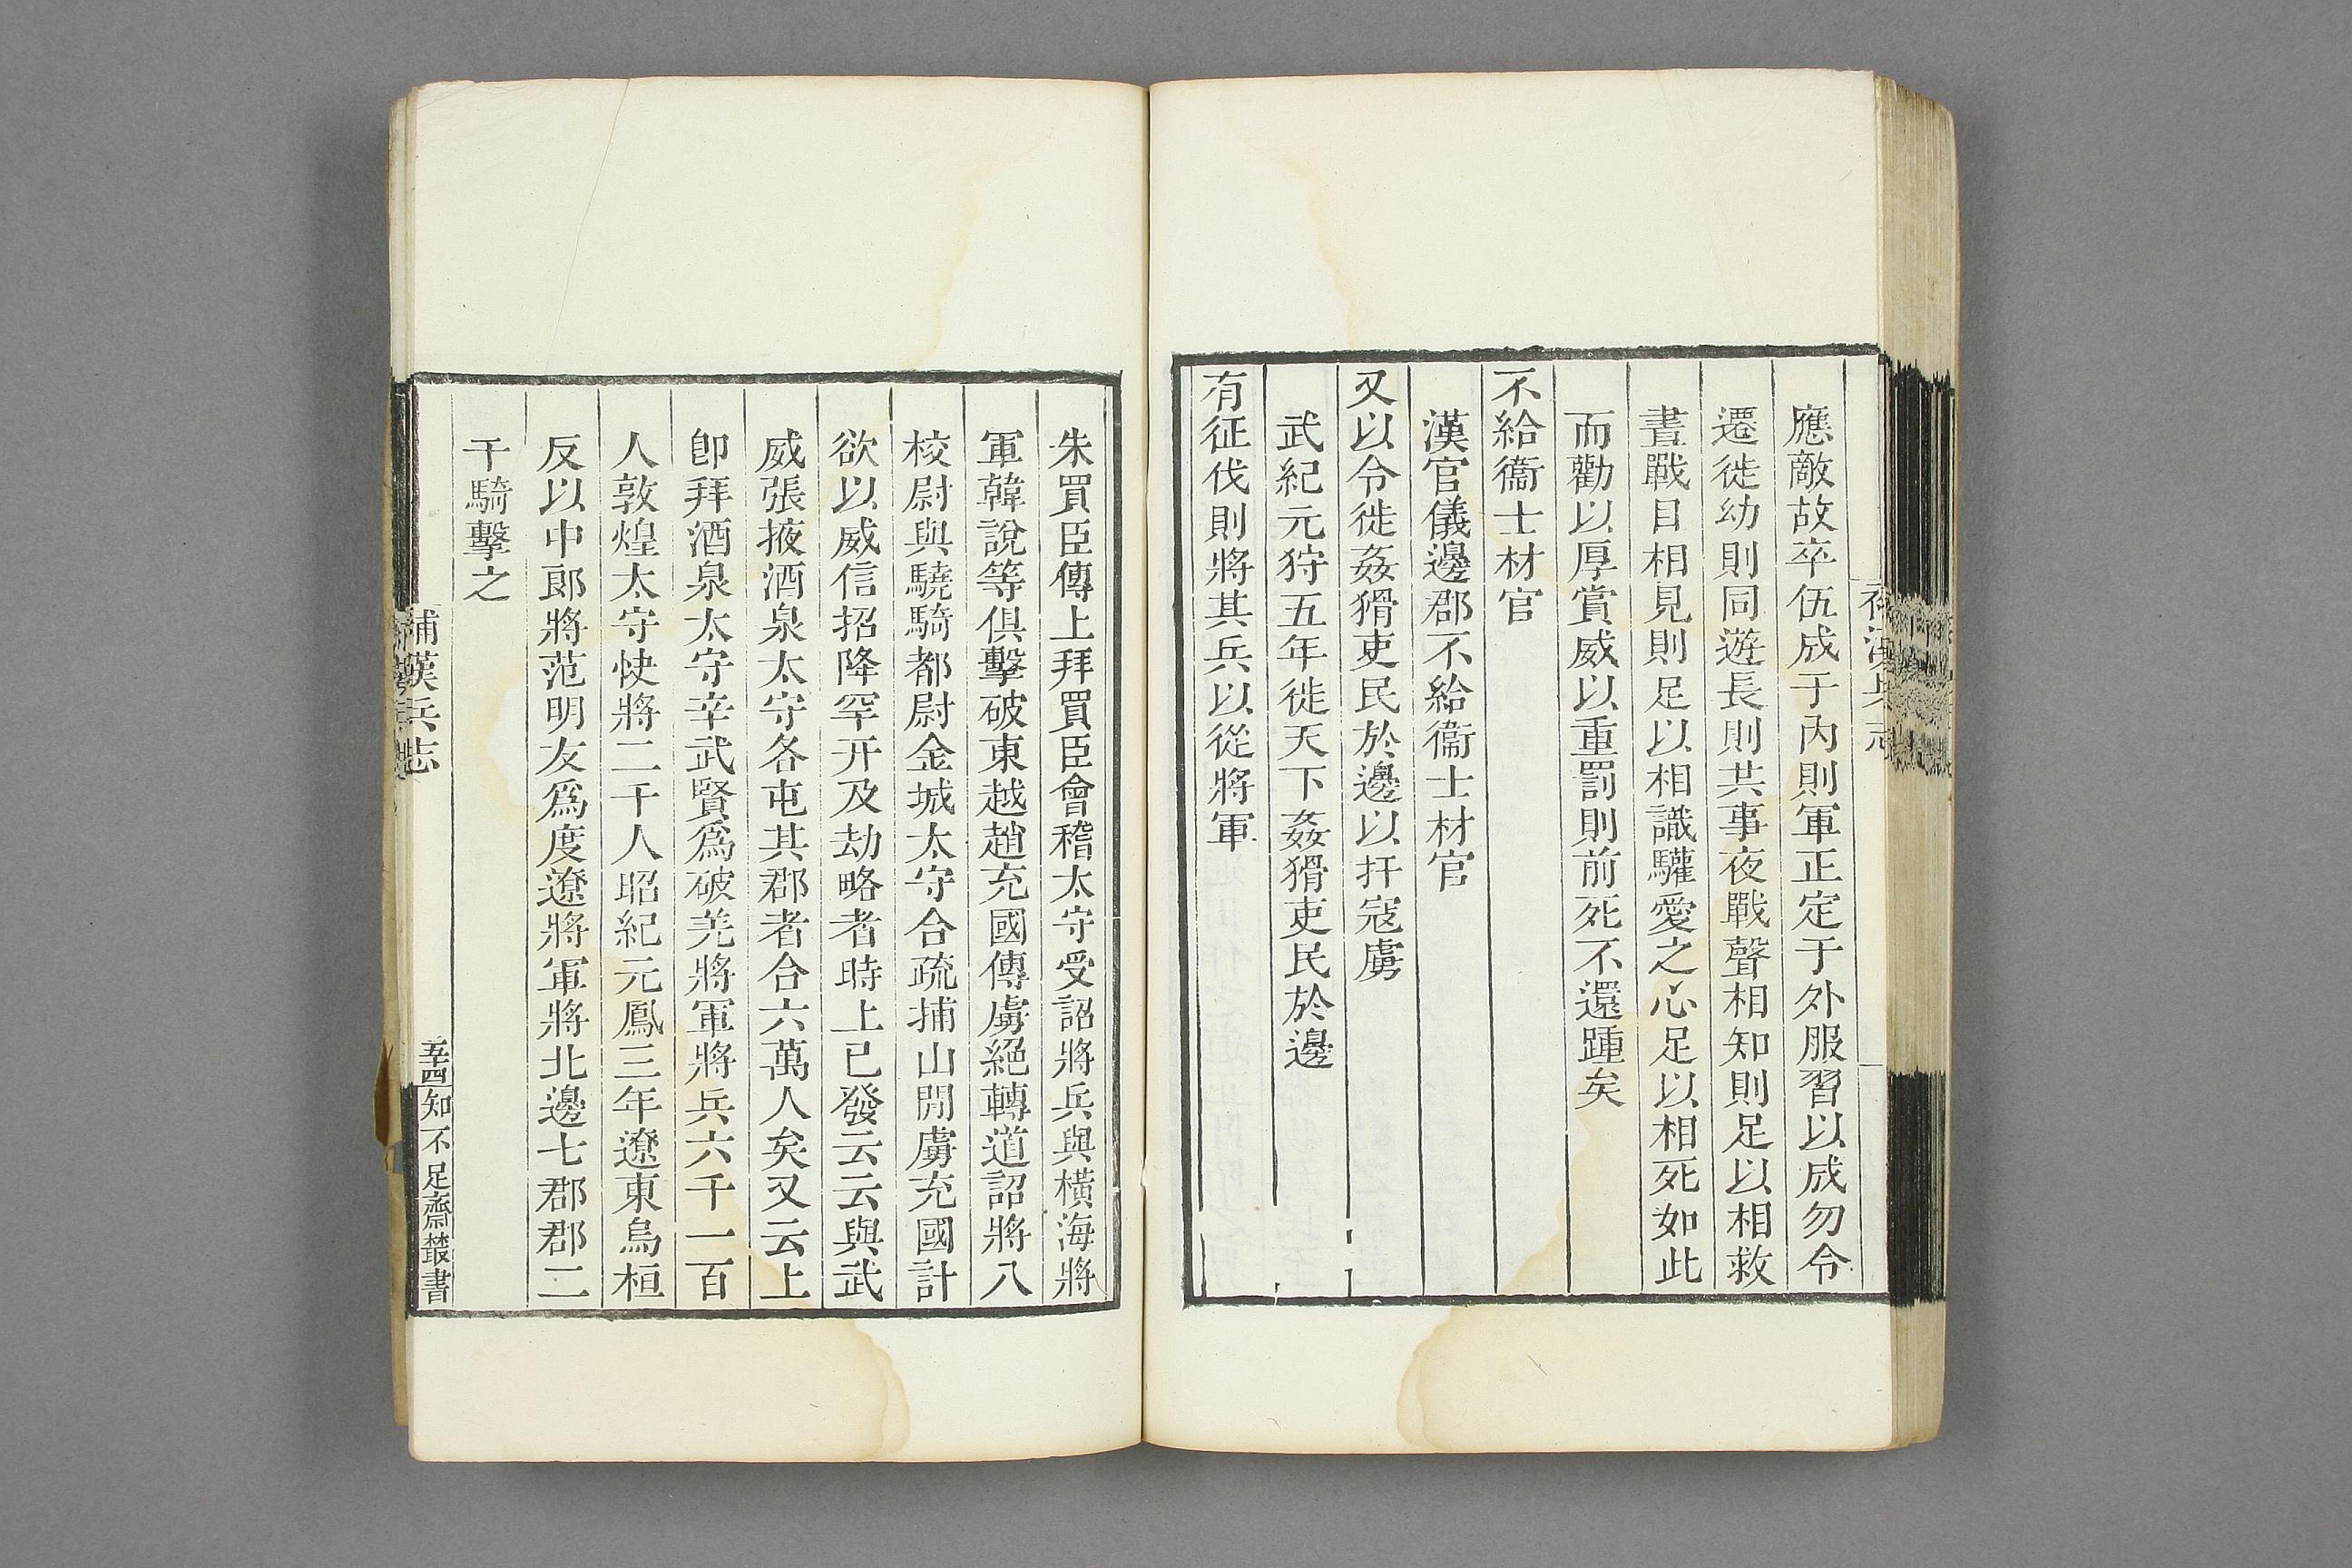 應敵故卒伍成于內則軍正定于外服習以成勿令
遷徙幼則同遊長則共事夜戰聲相知則足以相救
晝戰目相見則足以相識驩愛之心足以相死如此
而勸以厚賞威以重罰則前死不還踵矣
不給衞士材官
漢官儀邊郡不給衞士材官
又以令徙姦猾吏民於邊以扞寇虜
武紀元狩五年徙天下姦猾吏民於邊
有征伐則將其兵以從將軍
朱買臣傳上拜買臣會稽太守受詔將兵與橫海將
軍韓說等俱擊破東越趙充國傳虜絕轉道詔將八
校尉與驍騎都尉金城太守合疏捕山閒虜充國計
欲以威信招降罕幵及劫略者時上已發云云與武
威張掖酒泉太守各屯其郡者合六萬人矣又云上
卽拜酒泉太守辛武賢爲破羌將軍將兵六千一百
人敦煌太守快將二千人昭紀元鳳三年遼東烏桓
反以中郎將范明友爲度遼將軍將北邊七郡郡二
千騎擊之
補漢兵志
五十四
知不足齋叢書